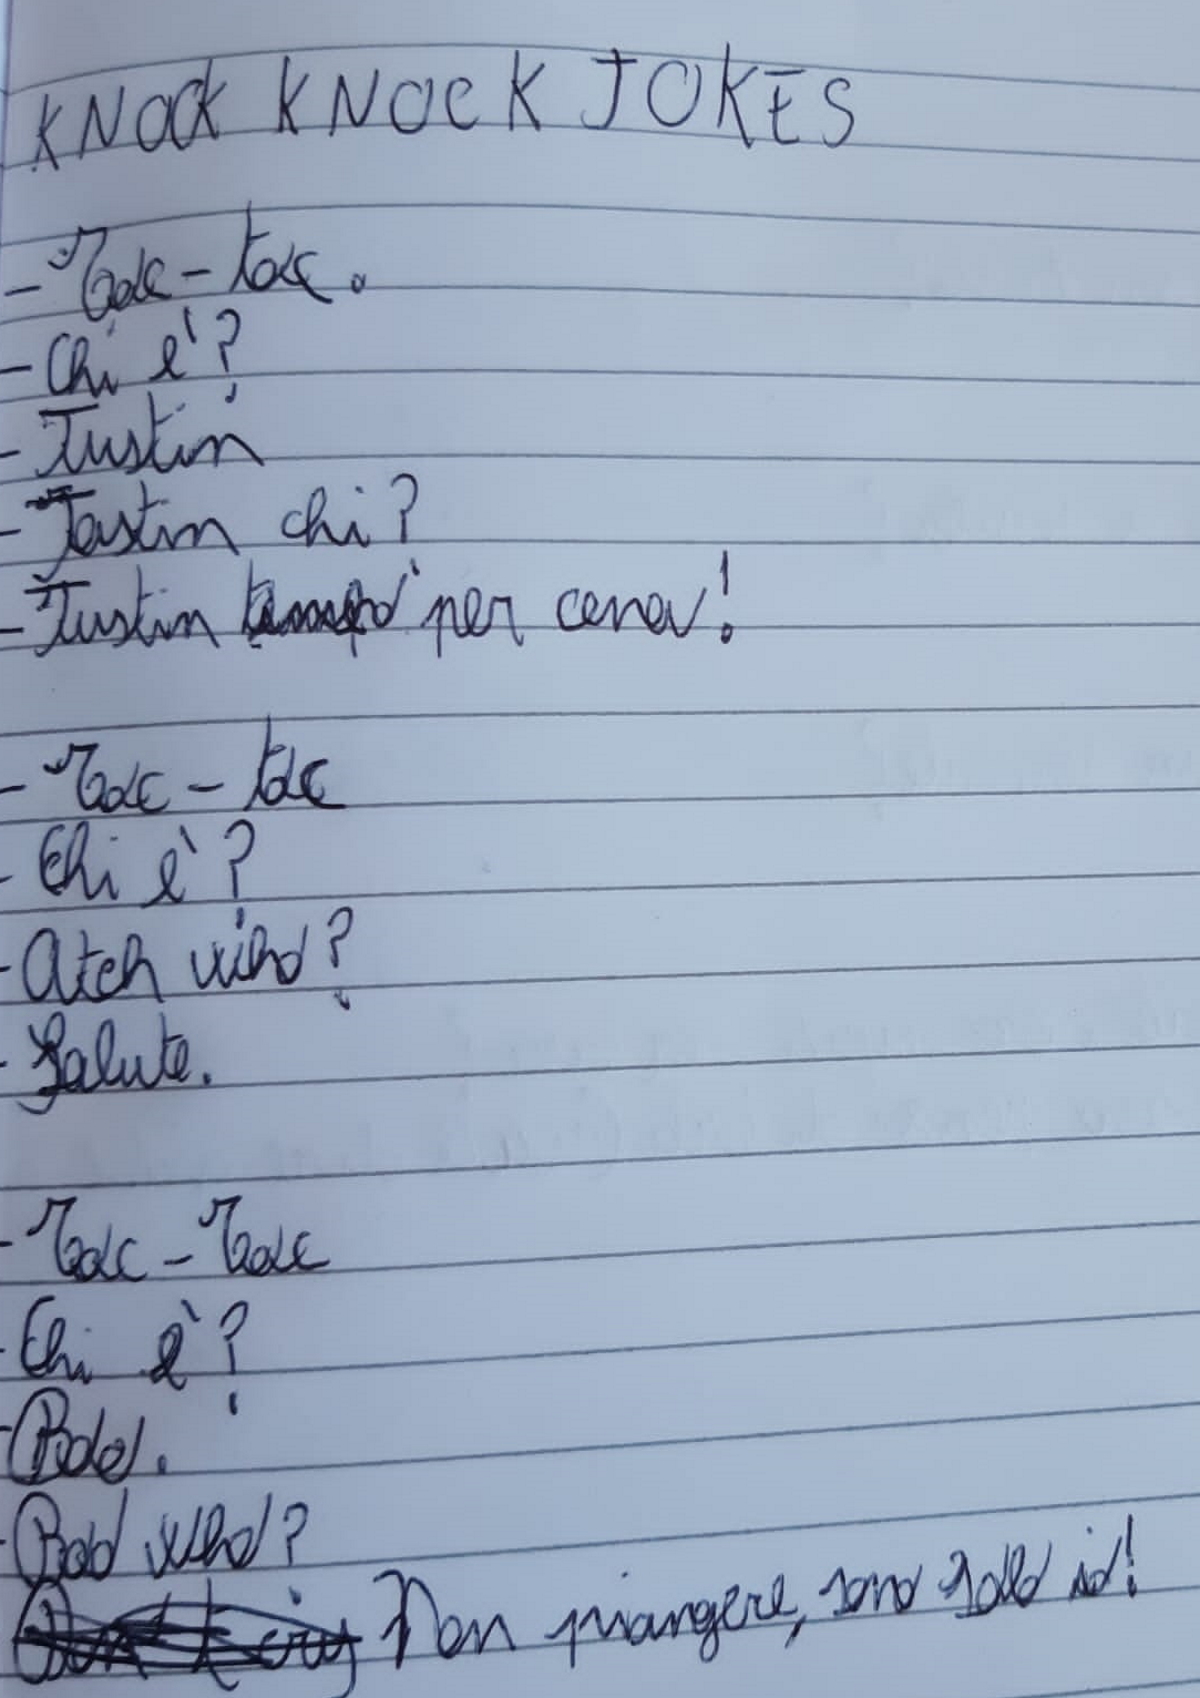 KNOCK KNOCK JOKES
- Toc - toc.
- Chi è?
- Justin
- Justin chi?
- Justin tempo per cena!
- Toc - toc
- Chi è?
- Atch who?
- Salute.
- Toc - Toc
- Chi è?
- Boo.
- Boo who?
Non piangere, sono solo io!